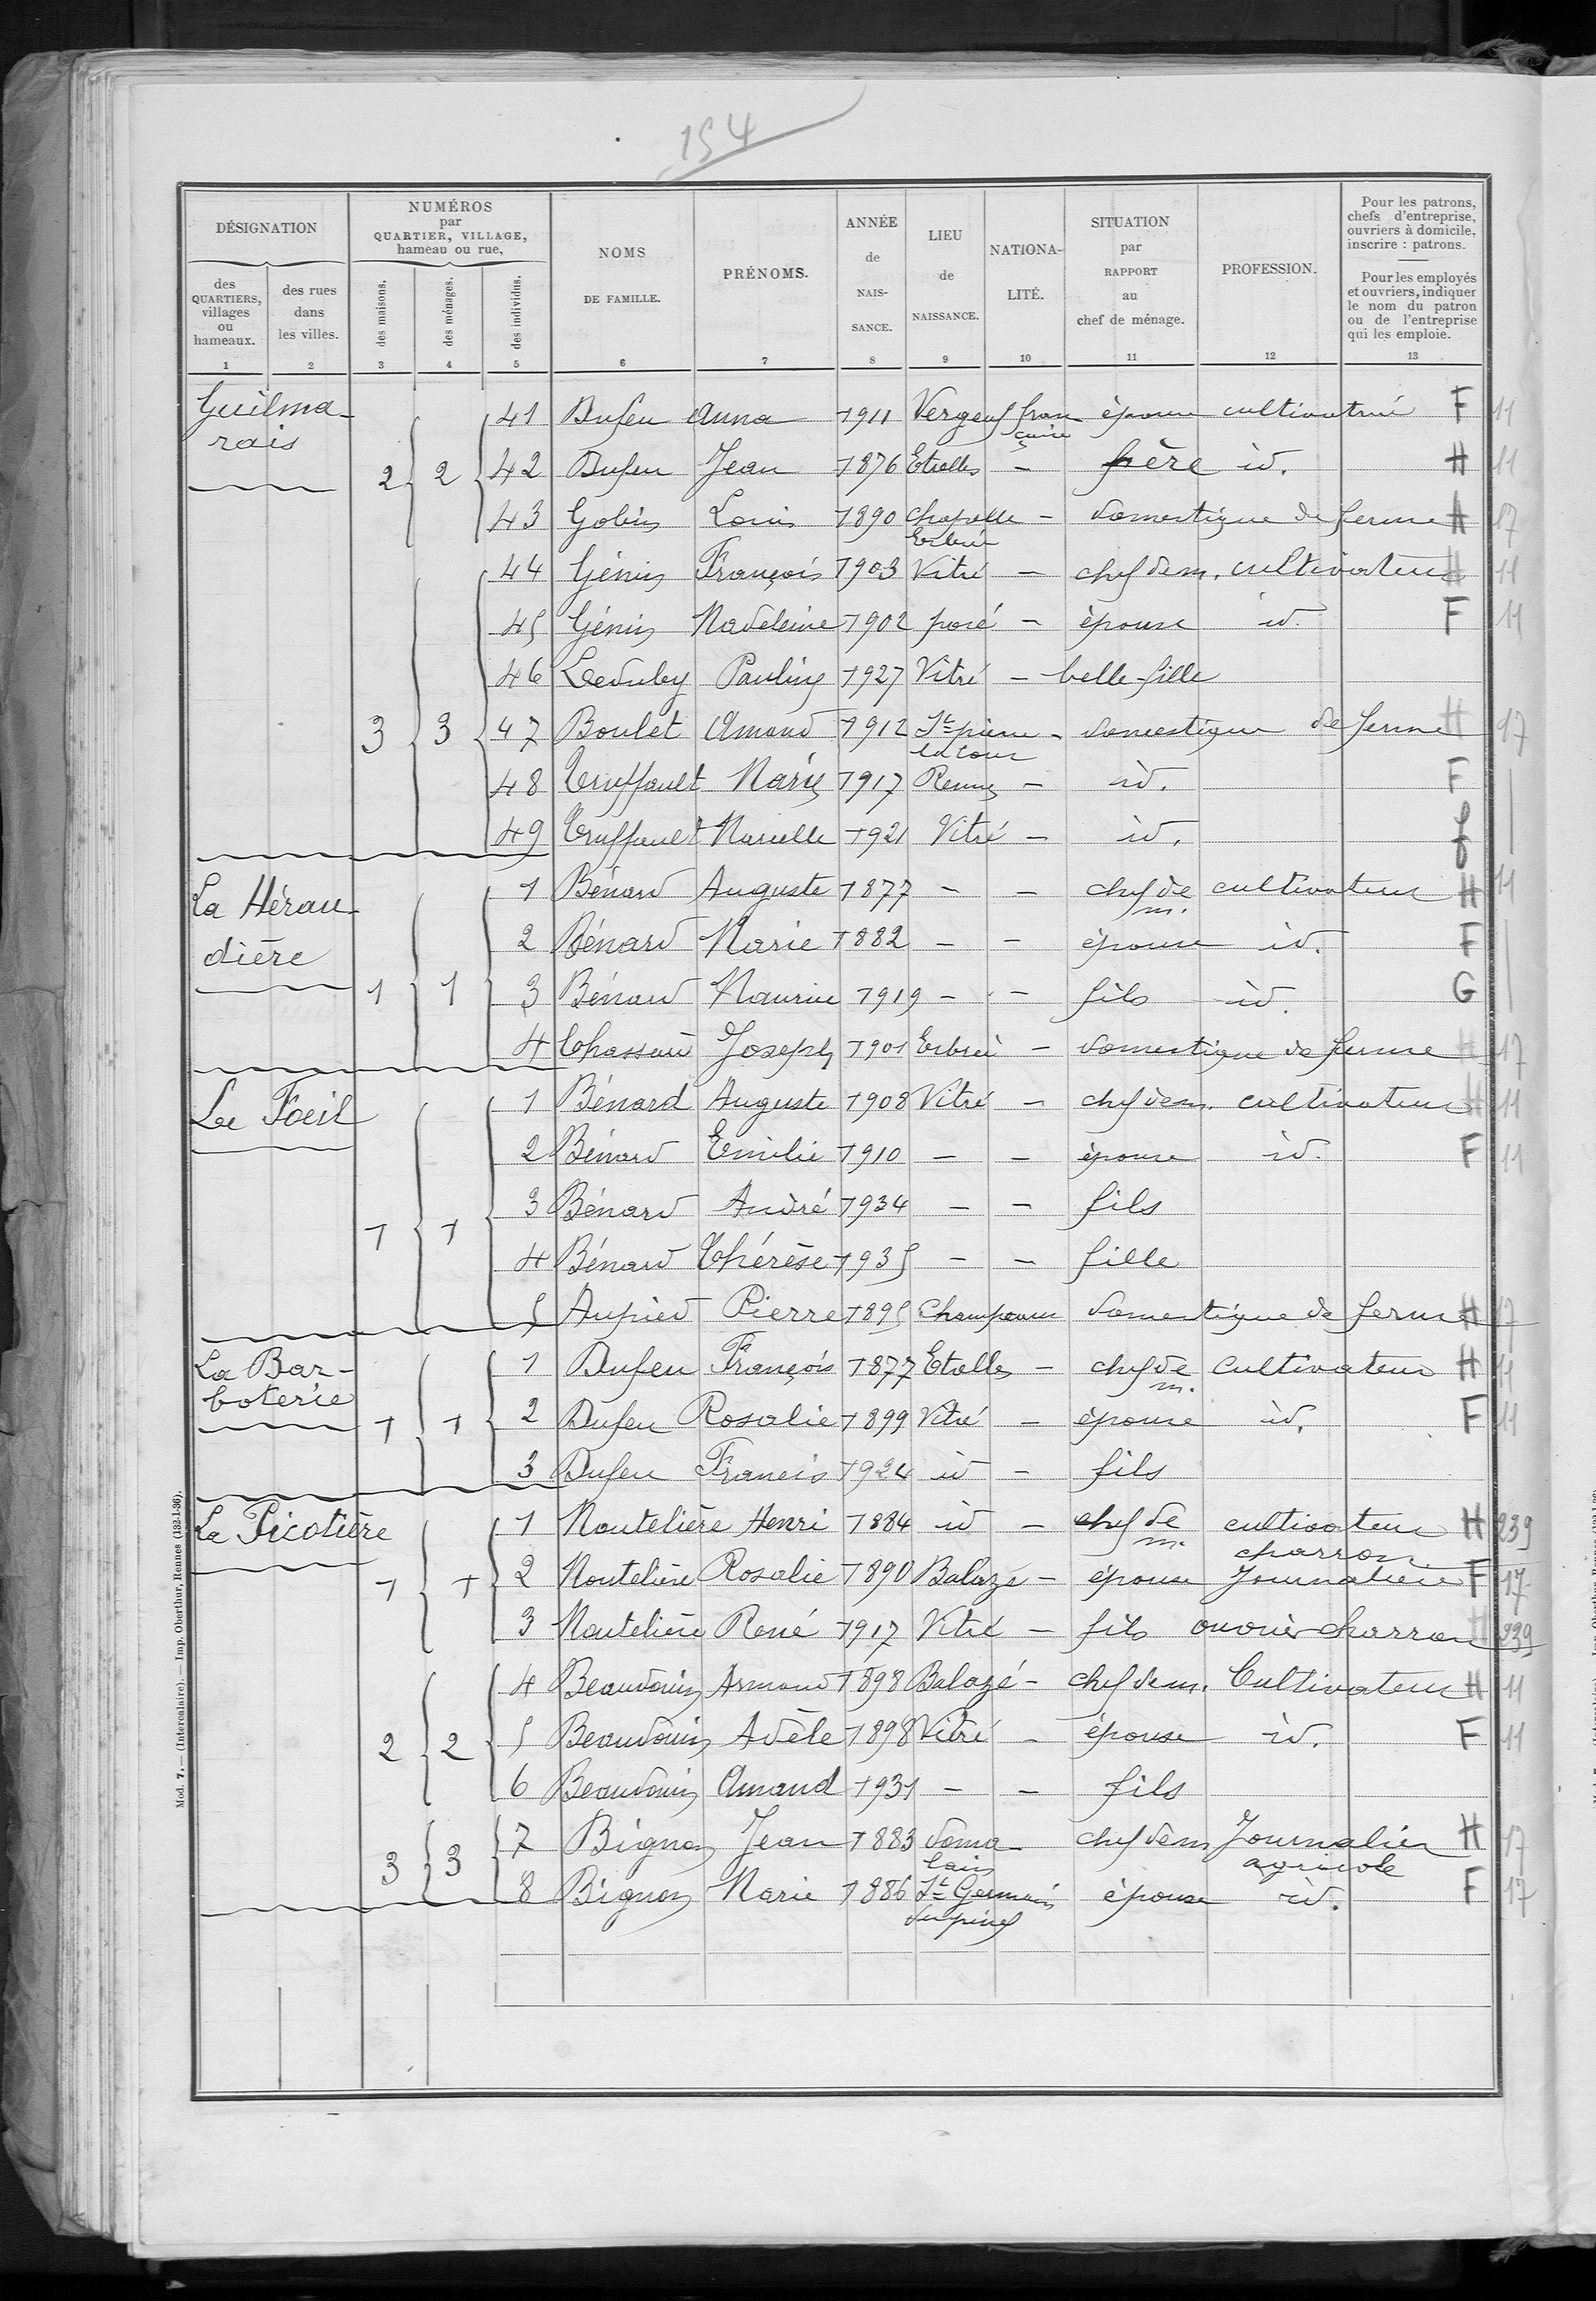 154
DÉSIGNATION
des QUARTIERS, villages ou hameaux.
des rues dans les villes.
NUMÉROS par QUARTIER, VILLAGE, hameau ou rue,
des maisons.
des ménages.
des individus.
NOMS DE FAMILLE.
PRÉNOMS.
ANNÉE de NAIS-SANCE.
LIEU de NAISSANCE.
NATIONA-LITÉ.
SITUATION par RAPPORT au chef de ménage.
PROFESSION.
Pour les patrons, chefs d'entreprise, ouvriers à domicile, inscrire : patrons.
Pour les employés et ouvriers, indiquer le nom du patron ou de l'entreprise qui les emploie.
1 2 3 4 5 6 7 8 9 10 11 12 13
Guilma-
rais
2 2
41 Dufeu Anna 1911 Vergeal fran
çaise épouse cultivatrice F 11
42 Dufeu Jean 1876 Etrelles - père id. H 11
43 Gobin Louis 1890 Chapelle
Erbrée - domestique de ferme H 17
3 3
44 Génin François 1903 Vitré - chef de m. cultivateur H 11
45 Génin Madeleine 1902 pocé - épouse id. F 11
46 Pauline 1927 Vitré - belle-fille
47 Boulet Amand 1912 St pierre
la cour - domestique de ferme H 17
48 Truffault Marie 1917 Rennes - id. F
49 Truffault Marcelle 1921 Vitré - id. f
La Hérau-
dière
1 1
1 Bénard Auguste 1877 - - chef de
m. cultivateur H 11
2 Bénard Marie 1882 - - épouse id. F
3 Bénard Maurice 1919 - - fils id. G
4 Joseph 1901 Erbrée - domestique de ferme H 17
Le Foeil
1 1
1 Bénard Auguste 1908 Vitré - chef de m. cultivateur H 11
2 Bénard Emilie 1910 - - épouse id. F 11
3 Bénard André 1934 - - fils
4 Bénard Thérèse 1935 - - fille
5 Aupied Pierre 1895 domestique de ferme H 17
La Bar-
boterie
1 1
1 Dufeu François 1877 Etelles - chef de
m. cultivateur H 11
2 Dufeu Rosalie 1899 Vitré - épouse id. F 11
3 Dufeu Francis 1924 id - fils
La Picotière
1 1
1 Moutelière Henri 1884 id - chef de
m. cultivateur
charron H 239
2 Moutelière Rosalie 1890 Balazé - épouse Journalière F 17
3 Moutelière René 1917 Vitré - fils ouvrier charron H 239
2 2
4 Beaudouin Armand 1898 Balazé - chef de m. Cultivateur H 11
5 Beaudouin Adèle 1898 Vitré - épouse id. F 11
6 Beaudouin Amand 1931 - - fils
3 3
7 Bignon Jean 1883 doma
lain chef de m Journalier
agricole H 17
8 Bignon Marie 1886 St Germain
du pinel épouse id. F 17
Mod. 7. - (Intercalaire). - Imp. Oberthur, Rennes (132-1-36).